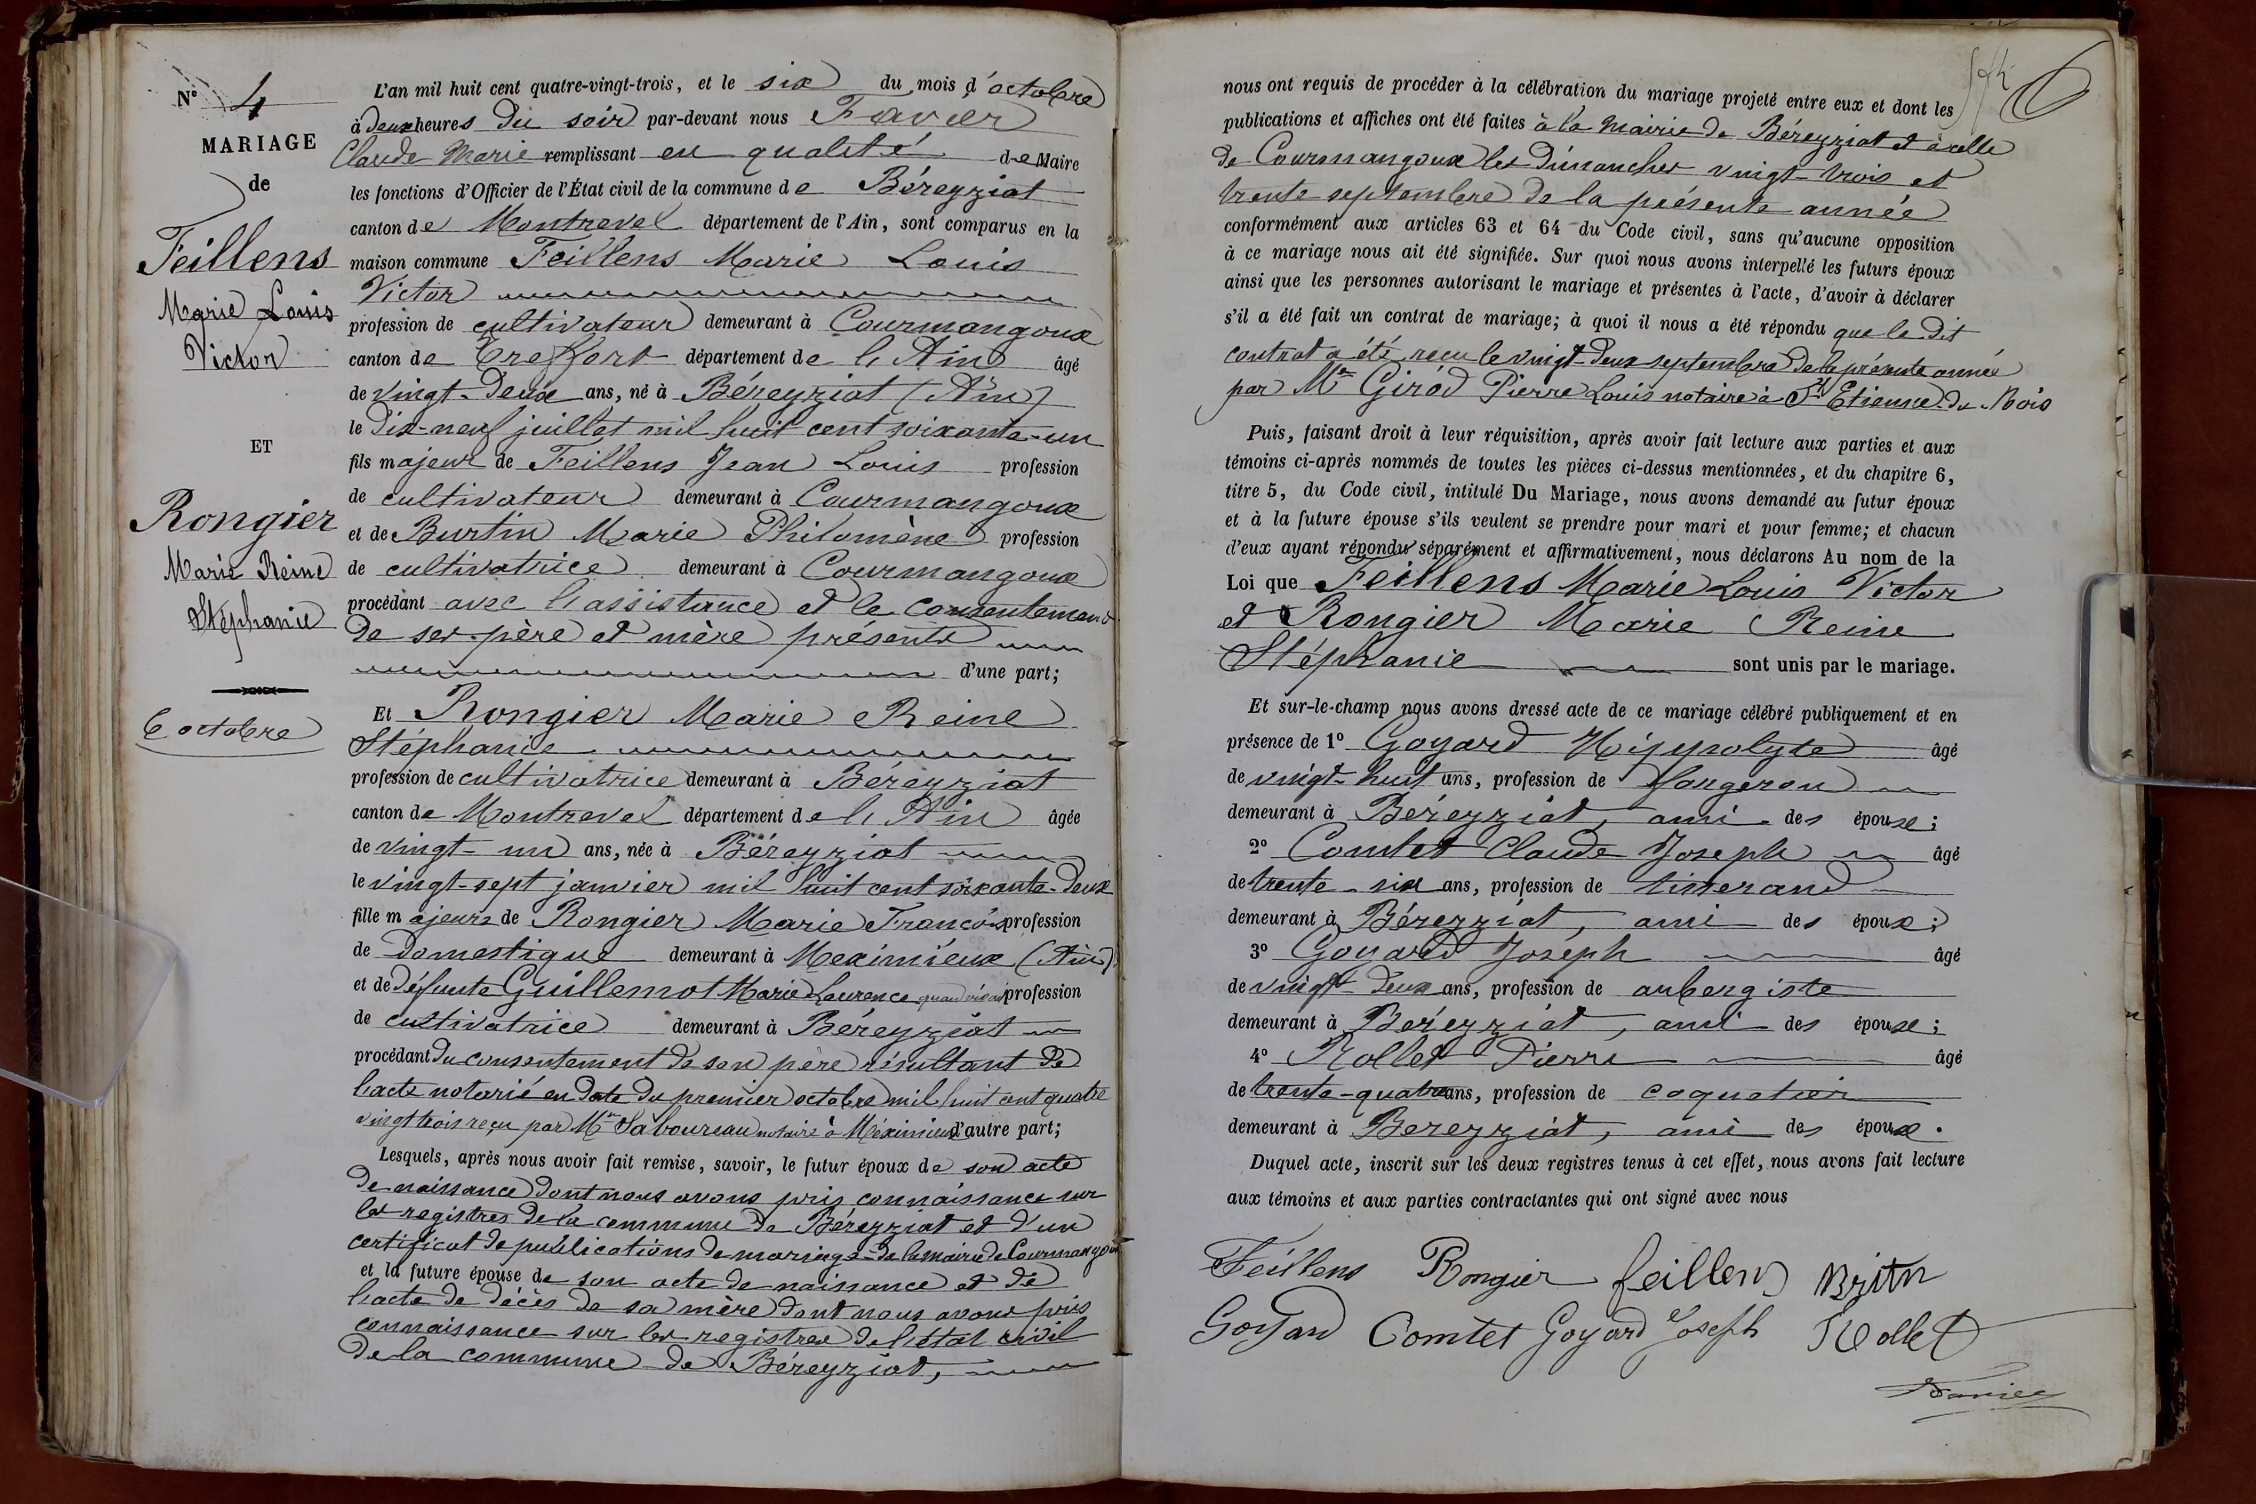 N° 4
MARIAGE
de
Feillens
Marie Louis
Victor
ET
Rongier
Marie Reine
Stéphanie
6 octobre
L'an mil huit cent quatre-vingt-trois, et le six du mois d'octobre
à deux heures du soir par-devant nous Favier
Claude Marie remplissant en qualité de Maire
les fonctions d'Officier de l'État civil de la commune de Béreyziat
canton de Montrevel département de l'Ain, sont comparus en la
maison commune Feillens Marie Louis
Victor
profession de cultivateur demeurant à Courmangoux
canton de Treffort département de l'Ain âgé
de vingt-deux ans, né à Béreyziat (Ain)
le dix-neuf juillet mil huit cent soixante-un
fils majeur de Feillens Jean Louis profession
de cultivateur demeurant à Courmangoux
et de Burtin Marie Philomène profession
de cultivatrice demeurant à Courmangoux
procédant avec l'assistance et le consentement
de ses père et mère présents
d'une part;
Et Rongier Marie Reine
Stéphanie
profession de cultivatrice demeurant à Béreyziat
canton de Montrevel département de l'Ain âgée
de vingt-un ans, née à Béreyziat
le vingt-sept janvier mil huit cent soixante-deux
fille majeure de Rongier Marie François profession
de domestique demeurant à Meximieux (Ain)
et de défunte Guillemot Marie Laurence quand vivait profession
de cultivatrice demeurant à Béreyziat
procédant du consentement de son père résultant de
l'acte notarié en date du premier octobre mil huit cent quatre
vingt trois reçu par Me Saboureau notaire à Méximieux d'autre part;
Lesquels, après nous avoir fait remise, savoir, le futur époux de son acte
de naissance dont nous avons pris connaissance sur
les registres de la commune de Béreyziat et d'un
certificat de publications de mariage de la mairie de Courmangoux
et la future épouse de son acte de naissance et de
l'acte de décès de sa mère dont nous avons pris
connaissance sur les registres de l'état civil
de la commune de Béreyziat,
nous ont requis de procéder à la célébration du mariage projeté entre eux et dont les
publications et affiches ont été faites à la mairie de Béreyziat et à celle
de Courmangoux les dimanches vingt-trois et
trente septembre de la présente année
conformément aux articles 63 et 64 du Code civil, sans qu'aucune opposition
à ce mariage nous ait été signifiée. Sur quoi nous avons interpellé les futurs époux
ainsi que les personnes autorisant le mariage et présentes à l'acte, d'avoir à déclarer
s'il a été fait un contrat de mariage; à quoi il nous a été répondu que le dit
contrat a été reçu le vingt-deux septembre de la présente année
par Me Girod Pierre Louis notaire à St Etienne-du-Bois
Puis, faisant droit à leur réquisition, après avoir fait lecture aux parties et aux
témoins ci-après nommés de toutes les pièces ci-dessus mentionnées, et du chapitre 6,
titre 5, du Code civil, intitulé Du Mariage, nous avons demandé au futur époux
et à la future épouse s'ils veulent se prendre pour mari et pour femme; et chacun
d'eux ayant répondu séparément et affirmativement, nous déclarons Au nom de la
Loi que Feillens Marie Louis Victor
et Rongier Marie Reine
Stéphanie sont unis par le mariage.
Et sur-le-champ nous avons dressé acte de ce mariage célébré publiquement et en
présence de 1° Goyard Hippolyte âgé
de vingt-huit ans, profession de forgeron
demeurant à Béreyziat, ami des époux;
2° Comtet Claude Joseph âgé
de trente-six ans, profession de tisserand
demeurant à Béreyziat, ami des époux;
3° Goyard Joseph âgé
de vingt-deux ans, profession de aubergiste
demeurant à Béreyziat, ami des époux;
4° Rollet Pierre âgé
de trente-quatre ans, profession de coquetier
demeurant à Bereyziat, ami des époux.
Duquel acte, inscrit sur les deux registres tenus à cet effet, nous avons fait lecture
aux témoins et aux parties contractantes qui ont signé avec nous
Feillens Rongier feillens
Goyard Comtet Goyard Joseph Rollet
Favier